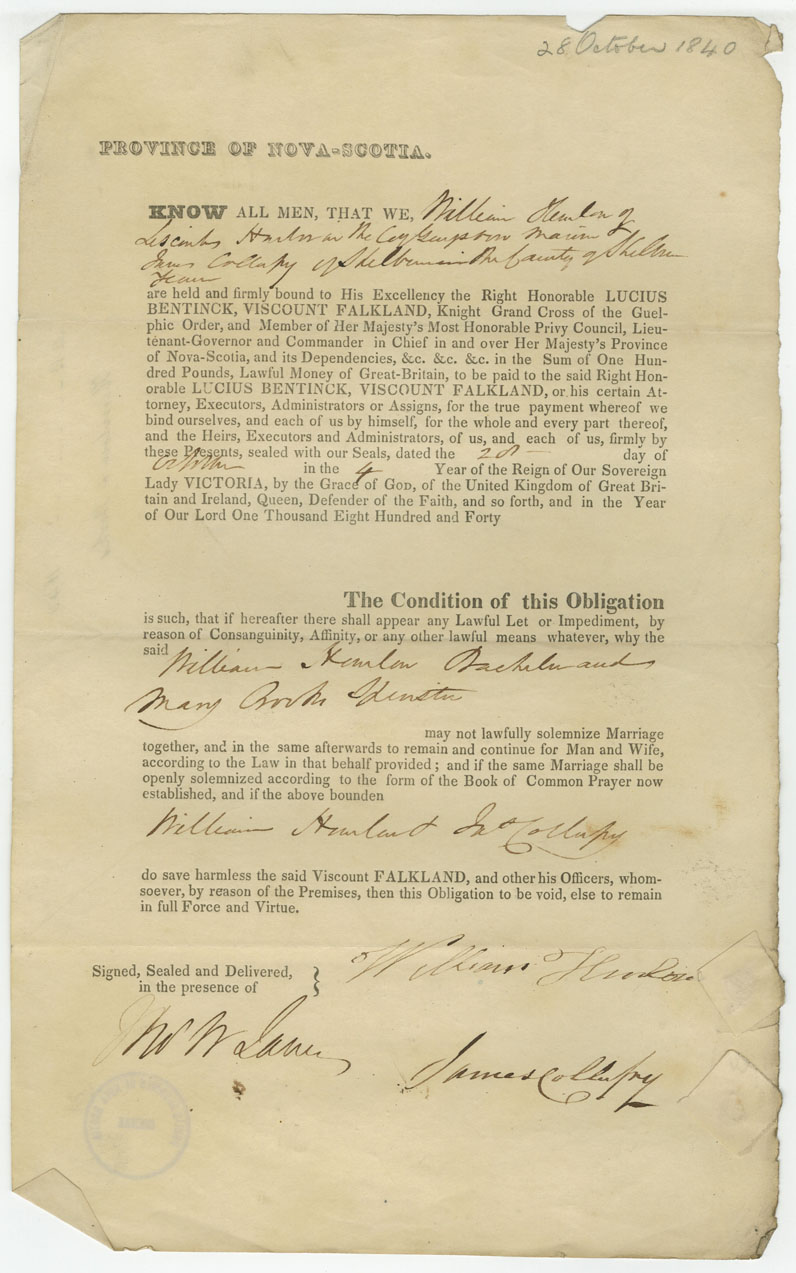 28 October 1840
PROVINCE OF NOVA-SCOTIA.
KNOW ALL MEN, THAT WE, William Hemlow of
Liscomb Harbor in the Coy Guysboro
James Collupy of Shelburne in the County of Shelburne
are held and firmly bound to His Excellency the Right Honorable LUCIUS
BENTINCK, VISCOUNT FALKLAND, Knight Grand Cross of the Guel-
phic Order, and Member of Her Majesty's Most Honorable Privy Council, Lieu-
tenant-Governor and Commander in Chief in and over Her Majesty's Province
of Nova-Scotia, and its Dependencies, &c. &c. &c. in the Sum of One Hun-
dred Pounds, Lawful Money of Great-Britain, to be paid to the said Right Hon-
orable LUCIUS BENTINCK, VISCOUNT FALKLAND, or his certain At-
torney, Executors, Administrators or Assigns, for the true payment whereof we
bind ourselves, and each of us by himself, for the whole and every part thereof,
and the Heirs, Executors and Administrators, of us, and each of us, firmly by
these Presents, sealed with our Seals, dated the 28 day of
October in the 4 Year of the Reign of Our Sovereign
Lady VICTORIA, by the Grace of God, of the United Kingdom of Great Bri-
tain and Ireland, Queen, Defender of the Faith, and so forth, and in the Year
of Our Lord One Thousand Eight Hundred and Forty
The Condition of this Obligation
is such, that if hereafter there shall appear any Lawful Let or Impediment, by
reason of Consanguinity, Affinity, or any other lawful means whatever, why the
said William Hemlow Bachelor and
Mary Crooks Spinster
may not lawfully solemnize Marriage
together, and in the same afterwards to remain and continue for Man and Wife,
according to the Law in that behalf provided; and if the same Marriage shall be
openly solemnized according to the form of the Book of Common Prayer now
established, and if the above bounden
William Hemlow & Jas Collupy
do save harmless the said Viscount FALKLAND, and other his Officers, whom-
soever, by reason of the Premises, then this Obligation to be void, else to remain
in full Force and Virtue.
Signed, Sealed and Delivered,
in the presence of
William Hemlow
W James
James Collupy